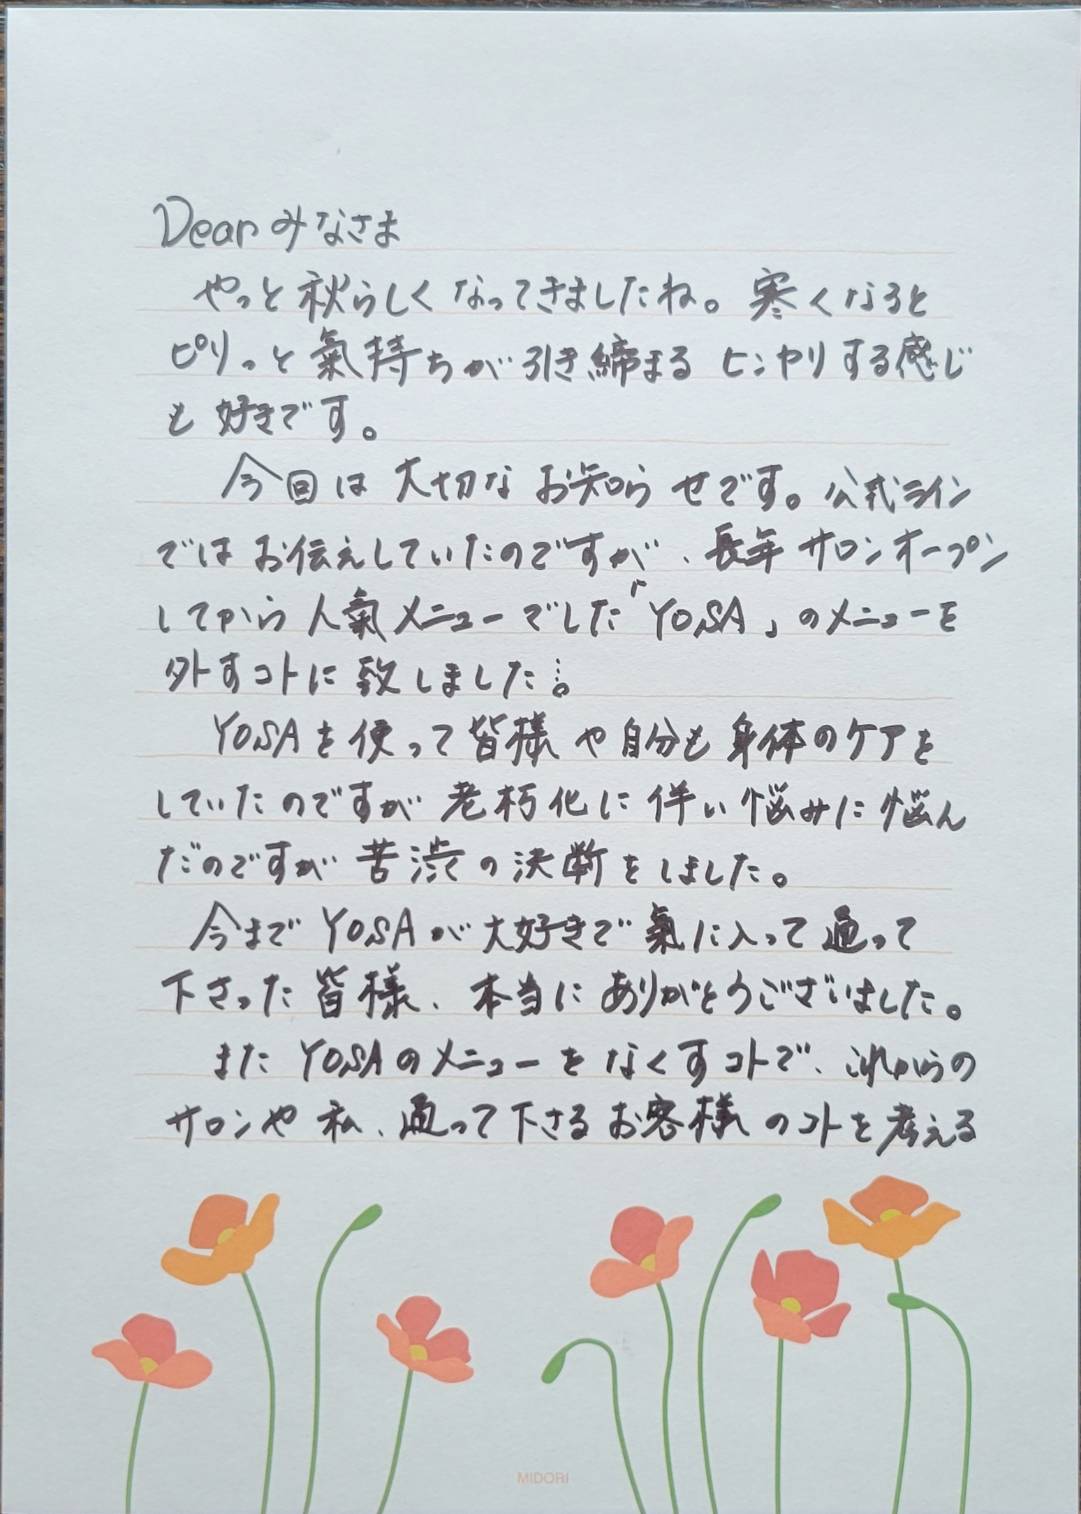 Dearみなさま
やっと秋らしくなってきましたね。寒くなると
ピリっと氣持ちが引き締まるヒンヤリする感じ
も好きです。
今回は大切なお知らせです。公式ライン
ではお伝えしていたのですが、長年サロンオープン
してから人氣メニューでした「YOSA」のメニューを
外すコトに致しました…。
YOSAを使って皆様や自分も身体のケアを
していたのですが老朽化に伴い悩みに悩ん
だのですが苦渋の決断をしました。
今までYOSAが大好きで氣に入って通って
下さった皆様、本当にありがとうございました。
またYOSAのメニューをなくすコトで、これからの
サロンや私、通って下さるお客様のコトを考える
MIDORI